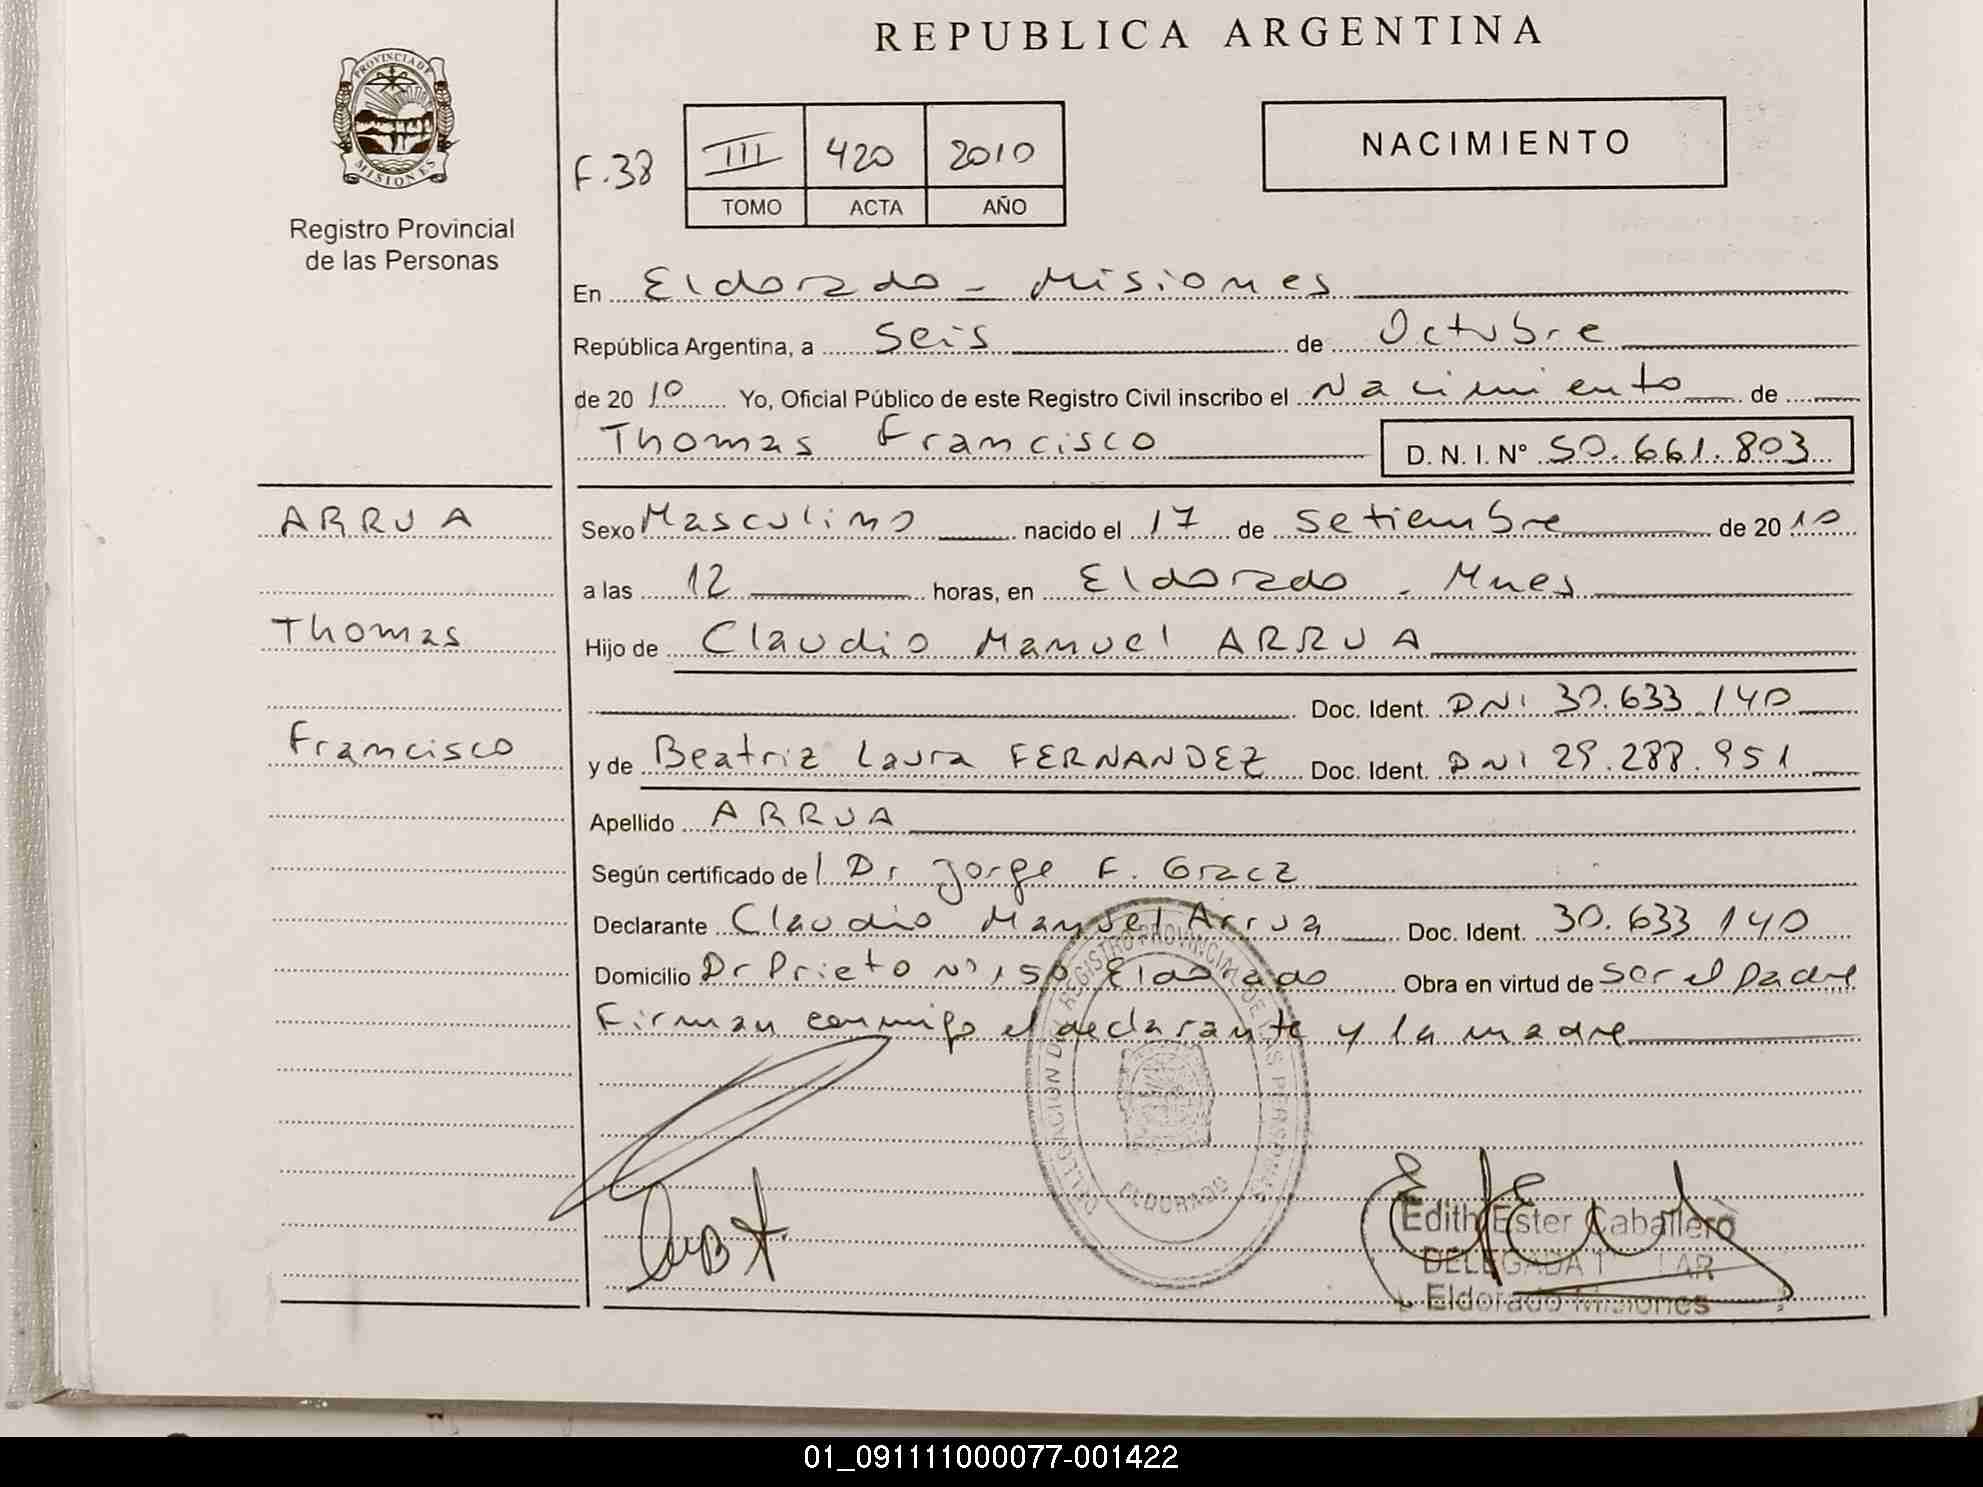 REPUBLICA ARGENTINA
PROVINCIA DE
MISIONES
Registro Provincial
de las Personas
NACIMIENTO
F. 38
III 420 2010
TOMO ACTA AÑO
En Eldorado - Misiones
República Argentina, a Seis de Octubre
de 2010 Yo, Oficial Público de este Registro Civil inscribo el Nacimiento de
Thomas Francisco D. N. I. Nº 50.661.803
ARRUA
Thomas
Francisco
Sexo Masculino nacido el 17 de Setiembre de 2010
a las 12 horas, en Eldorado - Mnes
Hijo de Claudio Manuel ARRUA
Doc. Ident. DNI 30.633.140
y de Beatriz Laura FERNANDEZ Doc. Ident. DNI 29.288.951
Apellido ARRUA
Según certificado del Dr Jorge F.
Declarante Claudio Manuel Arrua Doc. Ident. 30.633.140
Domicilio Dr Prieto Nº 150 Eldorado Obra en virtud de ser el padre
Firman conmigo el declarante y la madre
DELEGACION DEL REGISTRO PROVINCIAL DE LAS PERSONAS
ELDORADO
Edith Ester Caballero
DELEGADA
Eldorado Misiones
01_091111000077-001422